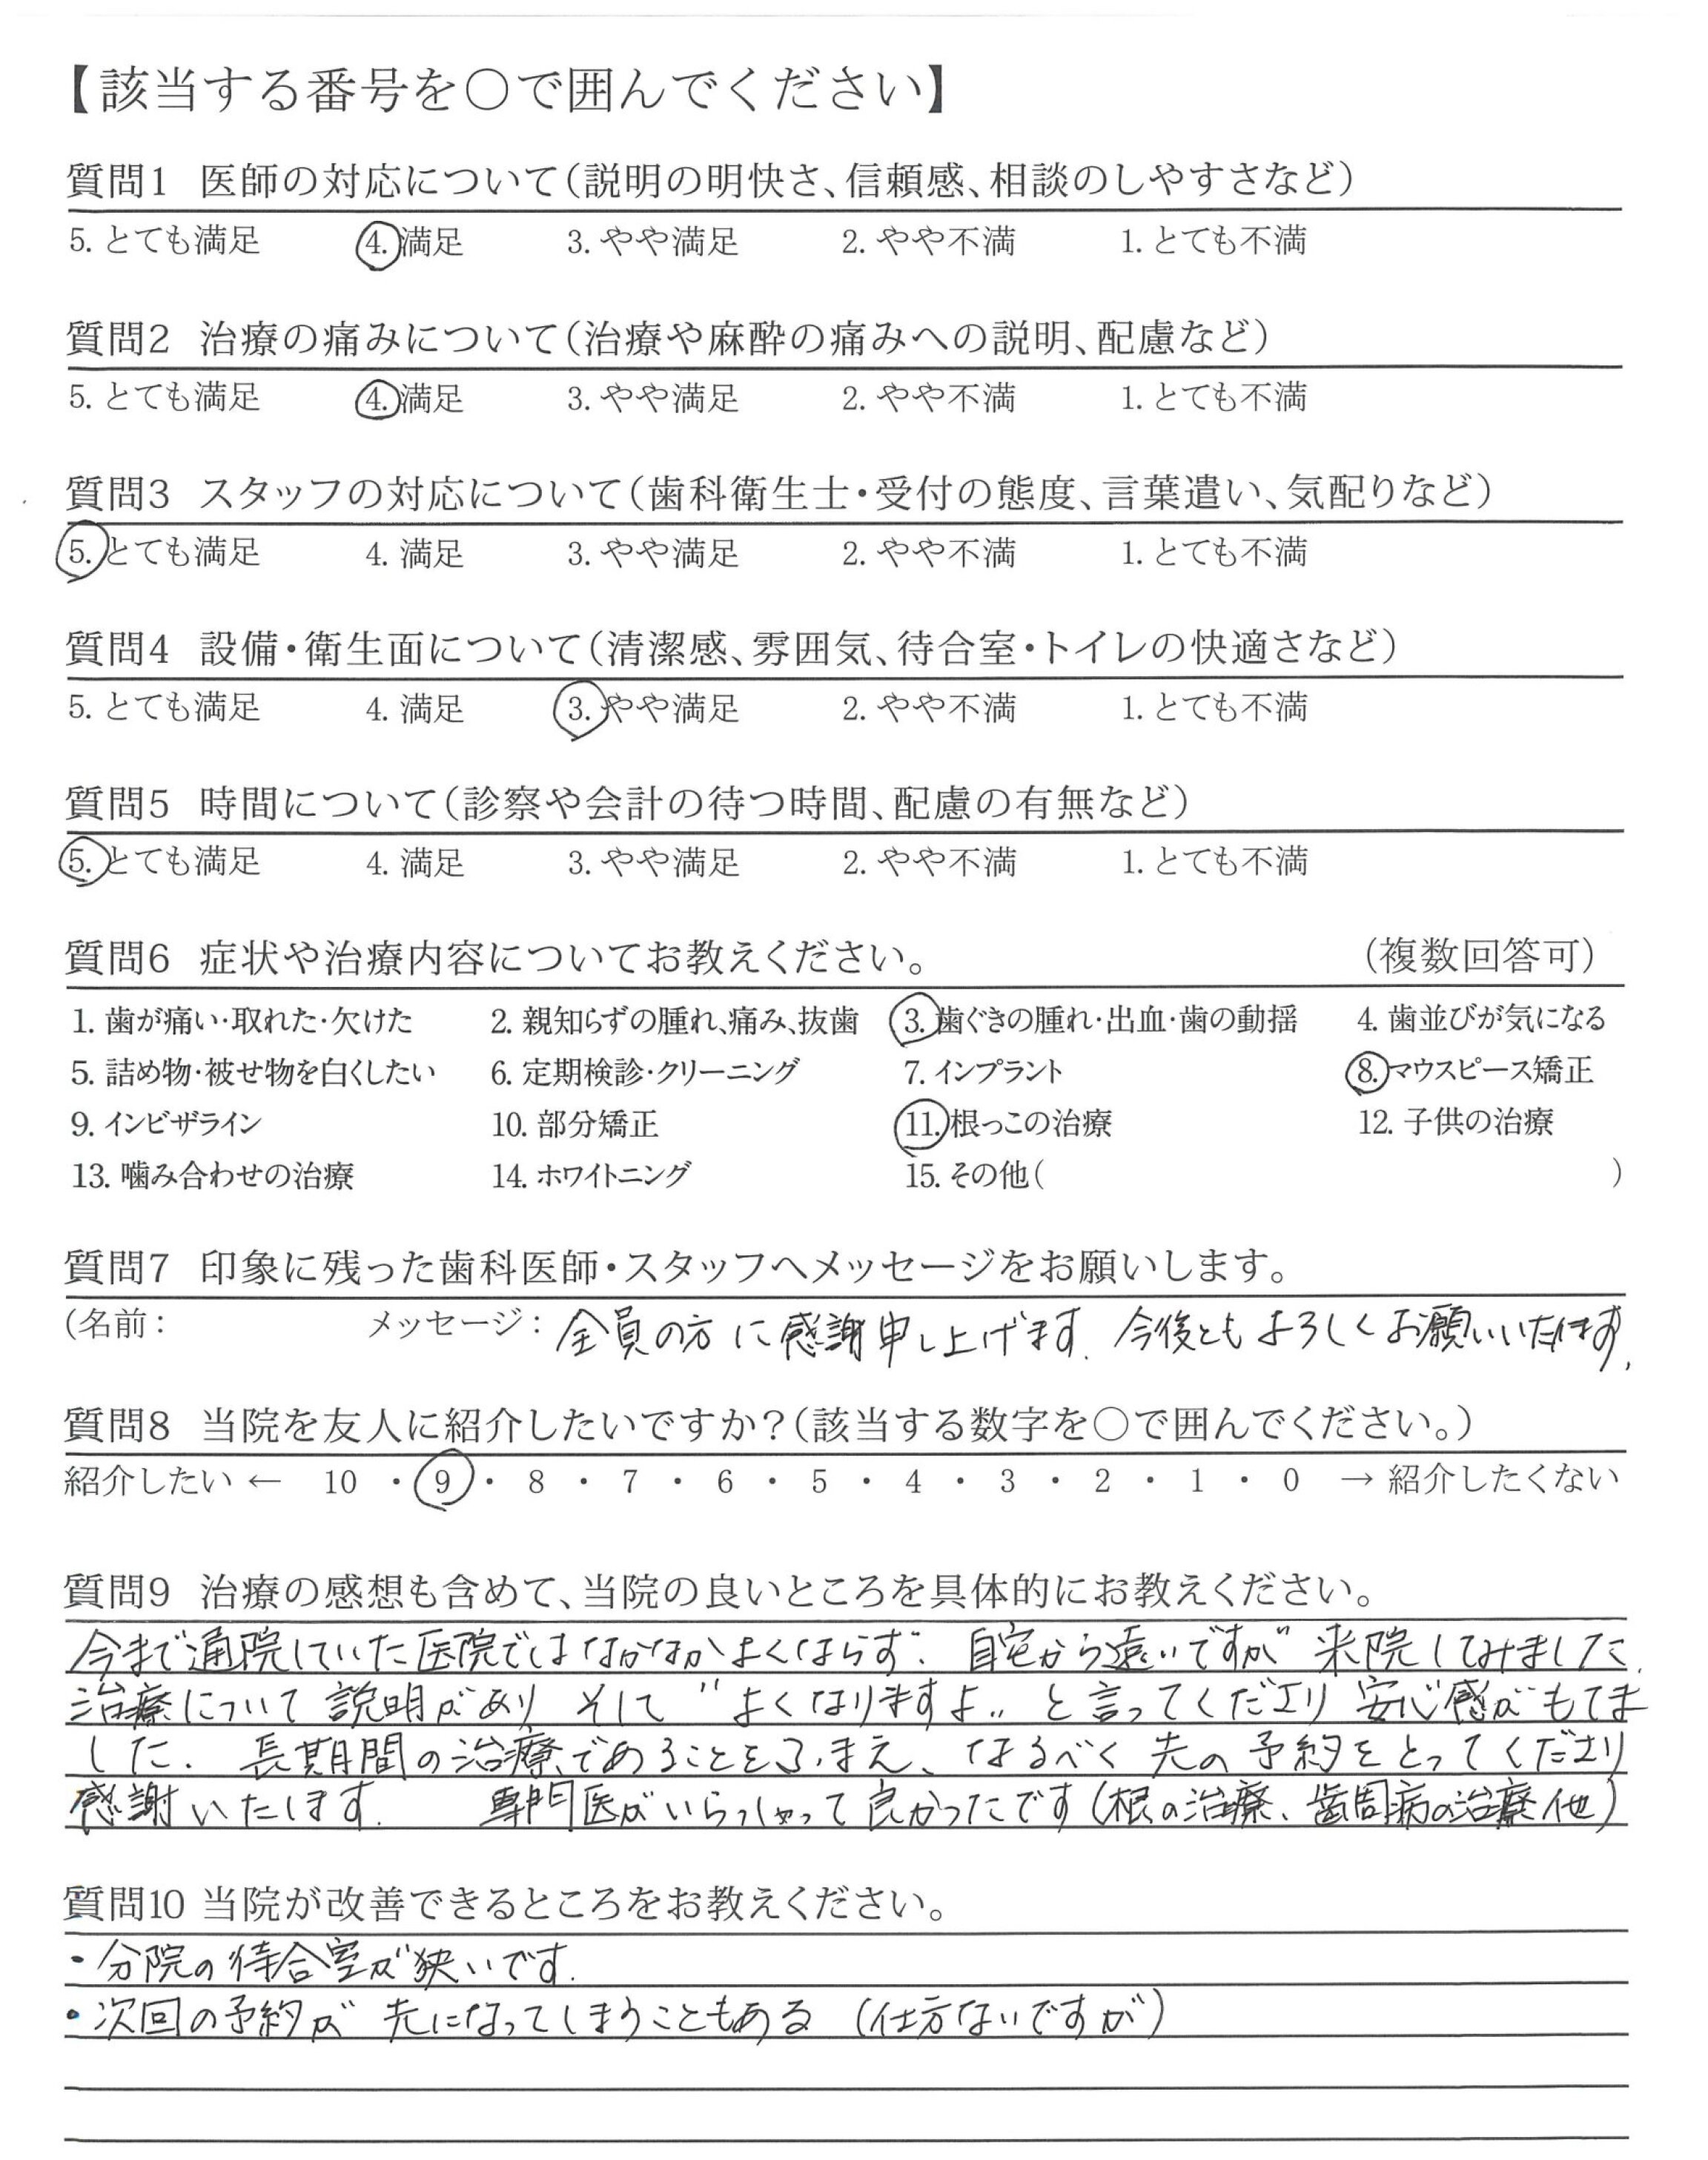 【該当する番号を〇で囲んでください】
質問1 医師の対応について(説明の明快さ、信頼感、相談のしやすさなど)
5. とても満足 4. 満足 3. やや満足 2. やや不満 1. とても不満
質問2 治療の痛みについて(治療や麻酔の痛みへの説明、配慮など)
5. とても満足 4. 満足 3. やや満足 2. やや不満 1. とても不満
質問3 スタッフの対応について(歯科衛生士・受付の態度、言葉遣い、気配りなど)
5. とても満足 4. 満足 3. やや満足 2. やや不満 1. とても不満
質問4 設備・衛生面について(清潔感、雰囲気、待合室・トイレの快適さなど)
5. とても満足 4. 満足 3. やや満足 2. やや不満 1. とても不満
質問5 時間について(診察や会計の待つ時間、配慮の有無など)
5. とても満足 4. 満足 3. やや満足 2. やや不満 1. とても不満
質問6 症状や治療内容についてお教えください。 (複数回答可)
1. 歯が痛い・取れた・欠けた 2. 親知らずの腫れ、痛み、抜歯 3. 歯ぐきの腫れ・出血・歯の動揺 4. 歯並びが気になる
5. 詰め物・被せ物を白くしたい 6. 定期検診・クリーニング 7. インプラント 8. マウスピース矯正
9. インビザライン 10. 部分矯正 11. 根っこの治療 12. 子供の治療
13. 噛み合わせの治療 14. ホワイトニング 15. その他( )
質問7 印象に残った歯科医師・スタッフへメッセージをお願いします。
(名前: メッセージ: 全員の方に感謝申し上げます. 今後ともよろしくお願いいたします.
質問8 当院を友人に紹介したいですか?(該当する数字を〇で囲んでください。)
紹介したい ← 10 ・ 9 ・ 8 ・ 7 ・ 6 ・ 5 ・ 4 ・ 3 ・ 2 ・ 1 ・ 0 → 紹介したくない
質問9 治療の感想も含めて、当院の良いところを具体的にお教えください。
今まで通院していた医院ではなかなかよくならず. 自宅から遠いですが 来院してみました.
治療について 説明があり そして "よくなりますよ" と言ってくださり 安心感がもてま
した. 長期間の治療であることをふまえ、なるべく 先の 予約をとってくださり
感謝いたします. 専門医がいらっしゃって良かったです(根の治療、歯周病の治療他)
質問10 当院が改善できるところをお教えください。
・分院の待合室が狭いです.
・次回の予約が 先になってしまうこともある (仕方ないですが)